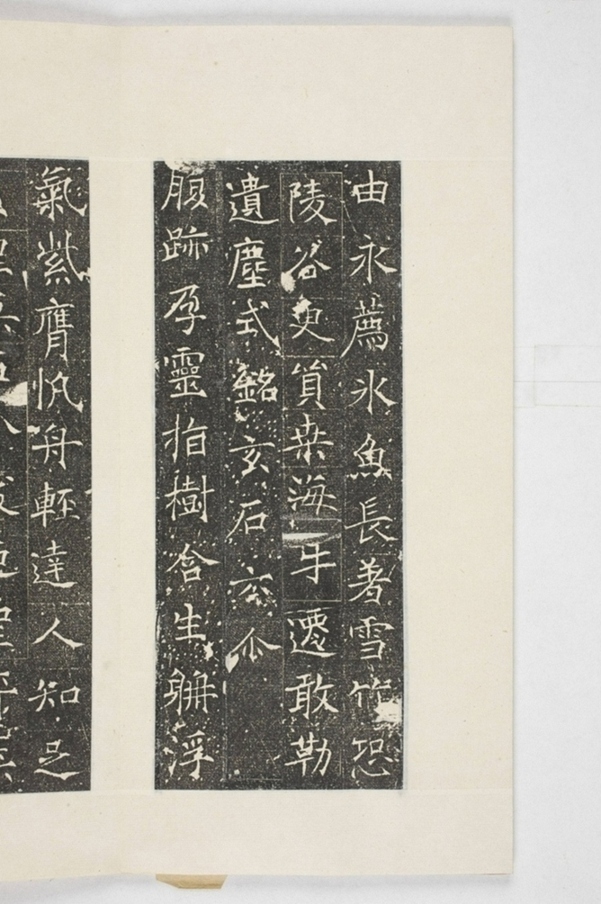 由永薦氷魚長著雪竹恐
陵谷更貿桒海㸦遷敢勒
遺塵式銘玄石云尒
腹跡孕靈指樹含生聃浮
氣紫膺帆舟輕達人知足